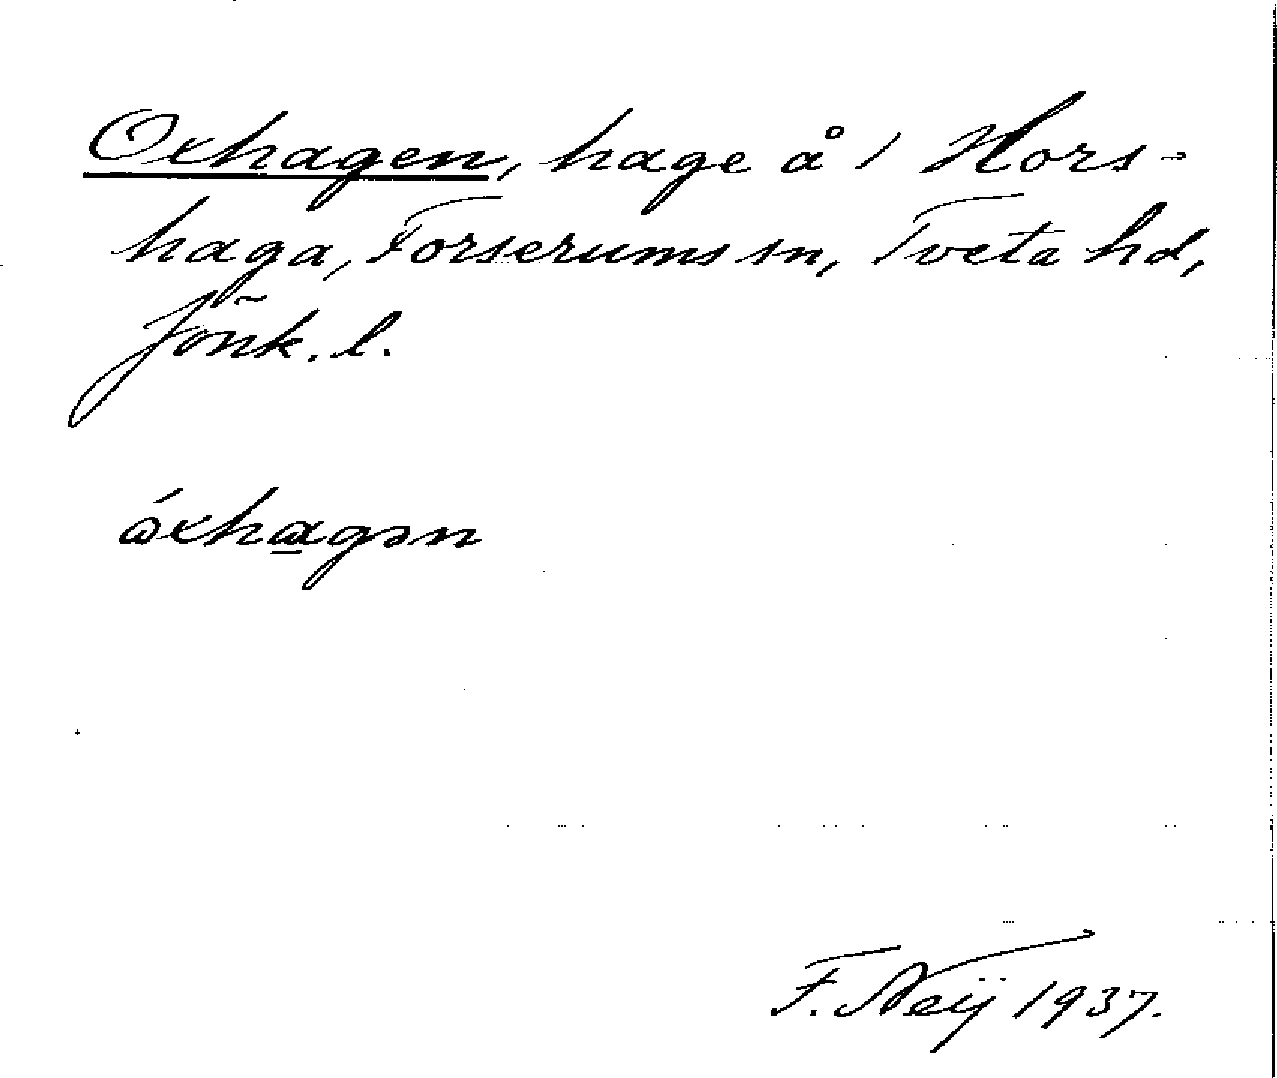 Oxhagen, hage å 1 Hors-
haga, Forserums sn, Tveta hd,
Jönk. l.
F. Neij 1937.